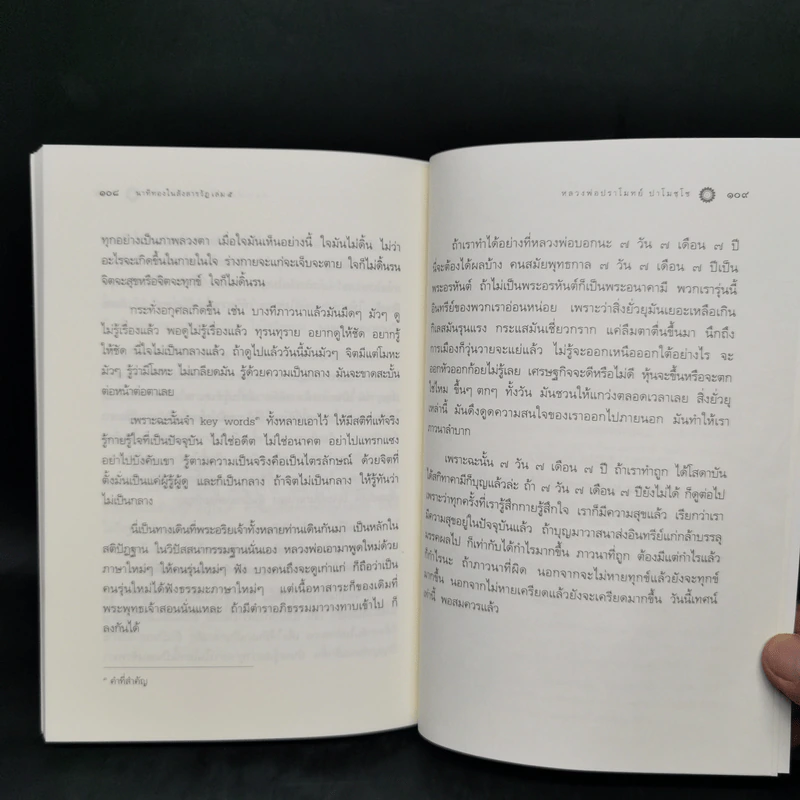 ๑๐๘ นาทีทองในสังสารวัฏ เล่ม ๕
ทุกอย่างเป็นภาพลวงตา เมื่อใจมันเห็นอย่างนี้ ใจมันไม่ดิ้น ไม่ว่า
อะไรจะเกิดขึ้นในกายในใจ ร่างกายจะแก่จะเจ็บจะตาย ใจก็ไม่ดิ้นรน
จิตจะสุขหรือจิตจะทุกข์ ใจก็ไม่ดิ้นรน
กระทั่งอกุศลเกิดขึ้น เช่น บางทีภาวนาแล้วมันมืดๆ มัวๆ ดู
ไม่รู้เรื่องแล้ว พอดูไม่รู้เรื่องแล้ว ทุรนทุราย อยากดูให้ชัด อยากรู้
ให้ชัด นี่ใจไม่เป็นกลางแล้ว ถ้าดูไปแล้ววันนี้มันมัวๆ จิตมีแต่โมหะ
มัวๆ รู้ว่ามีโมหะ ไม่เกลียดมัน รู้ด้วยความเป็นกลาง มันจะขาดสะบั้น
ต่อหน้าต่อตาเลย
เพราะฉะนั้นจำ key words* ทั้งหลายเอาไว้ ให้มีสติที่แท้จริง
รู้กายรู้ใจที่เป็นปัจจุบัน ไม่ใช่อดีต ไม่ใช่อนาคต อย่าไปแทรกแซง
อย่าไปบังคับเขา รู้ตามความเป็นจริงคือเป็นไตรลักษณ์ ด้วยจิตที่
ตั้งมั่นเป็นแค่ผู้รู้ผู้ดู และก็เป็นกลาง ถ้าจิตไม่เป็นกลาง ให้รู้ทันว่า
ไม่เป็นกลาง
นี่เป็นทางเดินที่พระอริยเจ้าทั้งหลายท่านเดินกันมา เป็นหลักใน
สติปัฏฐาน ในวิปัสสนากรรมฐานนั่นเอง หลวงพ่อเอามาพูดใหม่ด้วย
ภาษาใหม่ๆ ให้คนรุ่นใหม่ๆ ฟัง บางคนถึงจะดูเก่าแก่ ก็ถือว่าเป็น
คนรุ่นใหม่ได้ฟังธรรมะภาษาใหม่ๆ แต่เนื้อหาสาระก็ของเดิมที่
พระพุทธเจ้าสอนนั่นแหละ ถ้ามีตำราอภิธรรมมาวางทาบเข้าไป ก็
ลงกันได้
* คำที่สำคัญ
หลวงพ่อปราโมทย์ ปาโมชฺโช ๑๐๙
ถ้าเราทำได้อย่างที่หลวงพ่อบอกนะ ๗ วัน ๗ เดือน ๗ ปี
นี่จะต้องได้ผลบ้าง คนสมัยพุทธกาล ๗ วัน ๗ เดือน ๗ ปีเป็น
พระอรหันต์ ถ้าไม่เป็นพระอรหันต์ก็เป็นพระอนาคามี พวกเรารุ่นนี้
อินทรีย์ของพวกเราอ่อนหน่อย เพราะว่าสิ่งยั่วยุมันเยอะเหลือเกิน
กิเลสมันรุนแรง กระแสมันเชี่ยวกราก แค่ลืมตาตื่นขึ้นมา นึกถึง
การเมืองก็วุ่นวายจะแย่แล้ว ไม่รู้จะออกเหนือออกใต้อย่างไร จะ
ออกหัวออกก้อยไม่รู้เลย เศรษฐกิจจะดีหรือไม่ดี หุ้นจะขึ้นหรือจะตก
ใช่ไหม ขึ้นๆ ตกๆ ทั้งวัน มันชวนให้แกว่งตลอดเวลาเลย สิ่งยั่วยุ
เหล่านี้ มันดึงดูดความสนใจของเราออกไปภายนอก มันทำให้เรา
ภาวนาลำบาก
เพราะฉะนั้น ๗ วัน ๗ เดือน ๗ ปี ถ้าเราทำถูก ได้โสดาบัน
ได้สกิทาคามีก็บุญแล้วล่ะ ถ้า ๗ วัน ๗ เดือน ๗ ปียังไม่ได้ ก็ดูต่อไป
เพราะว่าทุกครั้งที่เรารู้สึกกายรู้สึกใจ เราก็มีความสุขแล้ว เรียกว่าเรา
มีความสุขอยู่ในปัจจุบันแล้ว ถ้าบุญบารมีวาสนาส่งอินทรีย์แก่กล้าบรรลุ
มรรคผลไป ก็เท่ากับได้กำไรมากขึ้น ภาวนาที่ถูก ต้องมีแต่กำไรแล้ว
ก็กำไรนะ ถ้าภาวนาที่ผิด นอกจากจะไม่หายทุกข์แล้วยังจะทุกข์
มากขึ้น นอกจากไม่หายเครียดแล้วยังจะเครียดมากขึ้น วันนี้เทศน์
เท่านี้ พอสมควรแล้ว